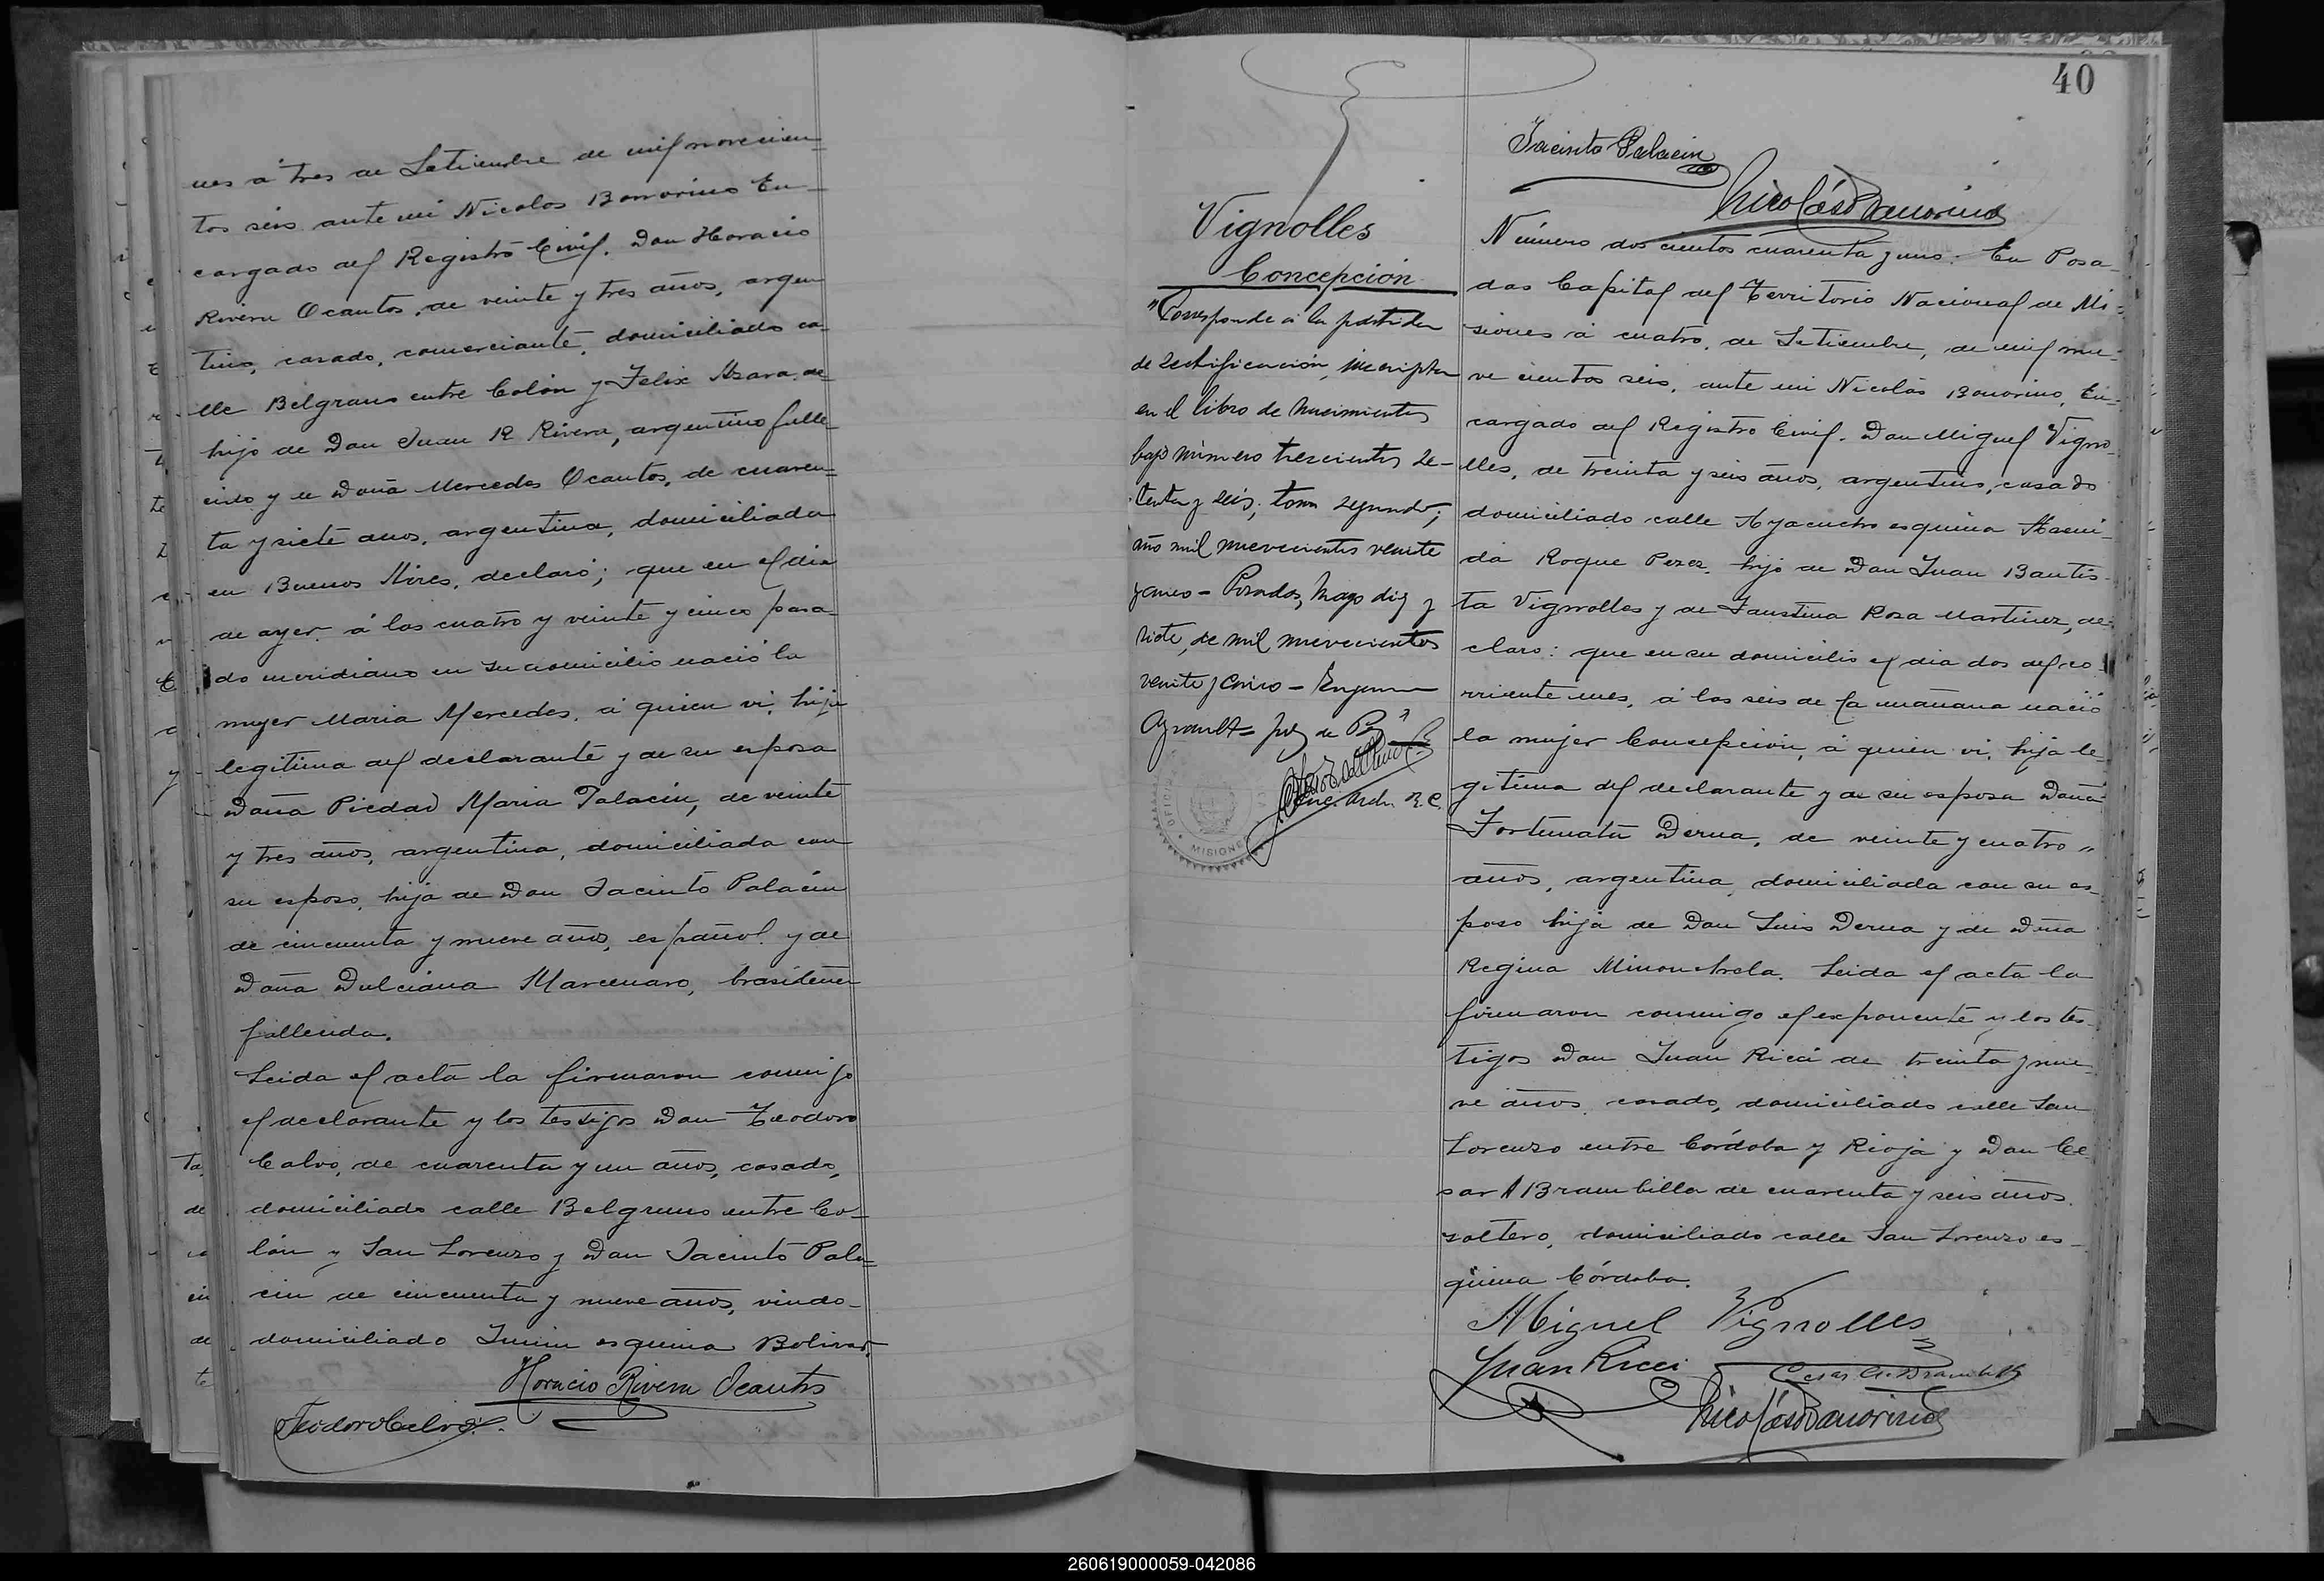 nes á tres de Setiembre de mil novecien-
tos seis ante mi Nicolas Bonorino En-
cargado del Registro Civil. Don Horacio
Rivera Ocantos, de veinte y tres años, argen
tino, casado, comerciante, domiciliado ca-
lle Belgrano entre Colón y Felix Azara, de
hijo de Don Juan R Rivera, argentino falle-
cido y de Doña Mercedes Ocantos, de cuaren-
ta y siete años, argentina, domiciliada
en Buenos Aires, declaró; que en el dia
de ayer á las cuatro y veinte y cinco pasa-
do meridiano en su domicilio nació la
mujer Maria Mercedes, á quien vi, hija
legitima del declarante y de su esposa
Doña Piedad Maria Palacin, de veinte
y tres años, argentina, domiciliada con
su esposo, hija de Don Jacinto Palacin
de cincuenta y nueve años, español y de
Doña Dulciana Marcenaro, brasileña
fallecida.
Leida el acta la firmaron conmigo
el declarante y los testigos Don Teodoro
Calvo, de cuarenta y un años, casado,
domiciliado calle Belgrano entre Co-
lón y San Lorenzo y Don Jacinto Pala-
cin de cincuenta y nueve años, viudo-
domiciliado Junin esquina Bolivar.
Horacio Rivera Ocantos
Teodoro Calvo
40
Jacinto Palacin
Nicolás Bonorino
Vignolles
Concepción
"Corresponde a la partida
de rectificación, inscripta
en el libro de nacimientos
bajo número trescientos se-
tenta y seis, tomo segundo;
año mil novecientos veinte
y cinco - Posadas, Mayo diez y
siete, de mil novecientos
veinte y cinco -
Juez de Paz"
Enc. Arch. R. C.
MISIONES
Número doscientos cuarenta y uno. En Posa-
das Capital del Territorio Nacional de Mi-
siones á cuatro, de Setiembre, de mil nue-
ve cientos seis, ante mi Nicolás Bonorino, En-
cargado del Registro Civil. Don Miguel Vigno-
lles, de treinta y seis años, argentino, casado
domiciliado calle Ayacucho esquina Aveni-
da Roque Perez, hijo de Don Juan Bautis-
ta Vignolles y de Faustina Rosa Martinez, de-
claro: que en su domicilio el dia dos del co-
rriente mes, á las seis de la mañana nació
la mujer Consepción, á quien vi, hija le-
gitima del declarante y de su esposa Doña
Fortunata Derna, de veinte y cuatro "
años, argentina, domiciliada con su es-
poso hija de Don Luis Derna y de Dña
Regina . Leida el acta la
firmaron conmigo el exponente y los tes-
tigos Don Juan Ricci de treinta y nue-
ve años, casado, domiciliado calle San
Lorenzo entre Córdoba y Rioja y Don Ce-
sar A Brambilla de cuarenta y seis años.
soltero, domiciliado calle San Lorenzo es-
quina Córdoba.
Miguel Vignolles
Juan Ricci
Cesar A. Brambilla
Nicolás Bonorino
260619000059-042086